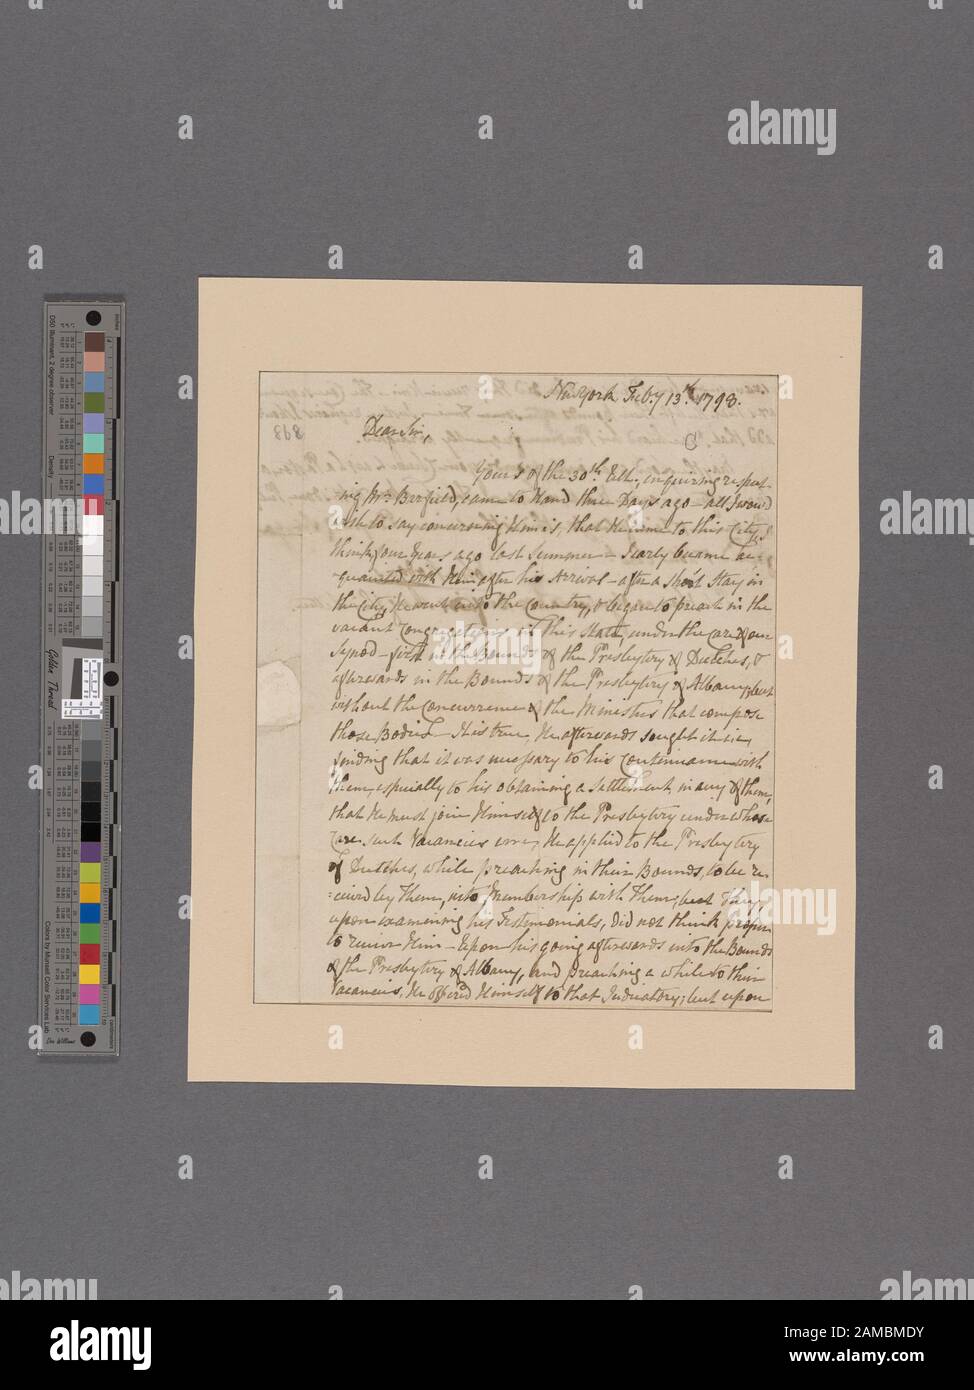 New York Feb.y 13.th 1798.
Dear Sir,
Yours of the 30th Ult., inquiring respect-
ing Mr. Barfield, came to Hand three Days ago – all I would
wish to say concerning Him is, that He came to this City, I
think, four Years ago last Summer – I early became ac-
-quainted with Him after his Arrival – after a short Stay in
the City, He went into the Country, & began to preach in the
vacant Congregations in this State, under the Care of our
Synod – first in the Bounds of the Presbytery of Dutches, &
afterwards in the Bounds of the Presbytery of Albany, but
without the Concurrence of the Ministers that compose
those Bodies – It is true, He afterwards sought it i.e.
finding that it was necessary to his Continuance with
them, especially to his obtaining a Settlement in any of them,
that He must join Himself to the Presbytery under whose
Care such Vacancies were, He applied to the Presbytery
of Dutches, while preaching in their Bounds, to be re-
-ceived by Them, into Membership with Them; but They
upon examining his Testimonials, did not think proper
to receive Him – Upon his going afterwards into the Bounds
of the Presbytery of Albany, and preaching a while to their
Vacancies, He offered Himself to that Judicatory; but upon
alamy
Image ID: 2AMBMDY
www.alamy.com